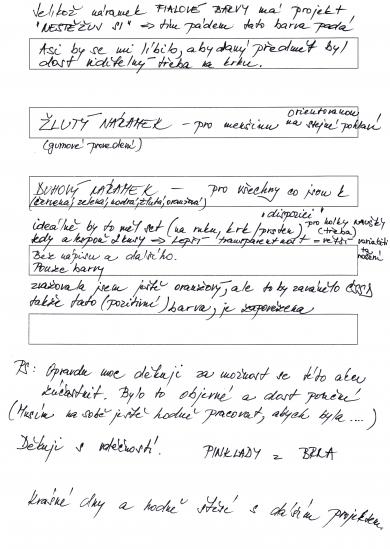 Velikož náramek FIALOVÉ BARVY má projekt
"NESTĚŽUJ SI" => tím pádem tato barva padá
Asi by se mi líbilo, aby daný předmět byl
dost viditelný třeba na krku.
ŽLUTÝ NÁRAMEK - pro menšinu orientovanou na stejné pohlaví
(gumové provedení)
DUHOVÝ NÁRAMEK - pro všechny co jsou k "dispozici"
(červená, zelená, modrá, žlutá, oranžová)
ideálně by to měl set (na ruku, krk/prsten), pro holky NAUŠNICE (třeba)
tedy a kusy => LEPŠÍ transparentnost = větší variabilita nošení
Bez nápisu a dalšího.
Pouze barvy
zvažovala jsem ještě oranžový, ale to by zavánělo ČSSD
takže tato (pozitivní) barva, je zapovězena
PS: Opravdu moc děkuji za možnost se této akce
zúčastnit. Bylo to objevné a dost poučné
(Musím na sobě ještě hodně pracovat, abych byla ....)
Děkuji s vděčností. PINKLADY =
Krásné dny a hodně štěstí s dalším projektem.